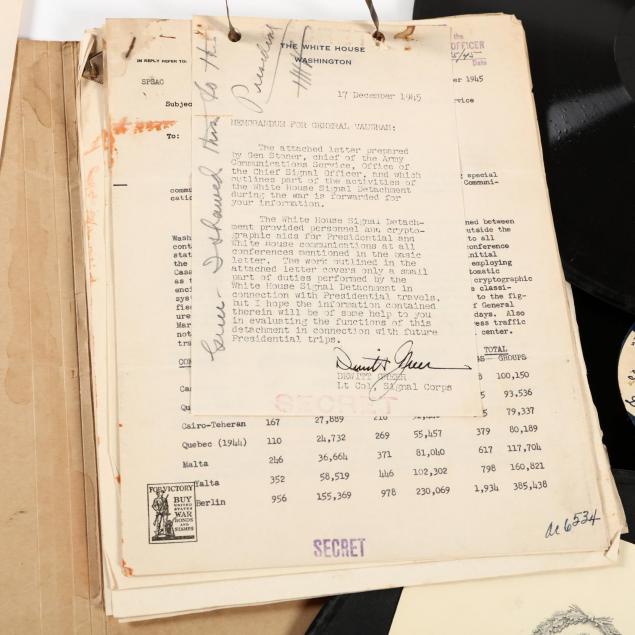 THE WHITE HOUSE
WASHINGTON
17 December 1945
MEMORANDUM FOR GENERAL VAUGHAN:
The attached letter prepared
by Gen Stoner, chief of the Army
Communications Service, Office of
the Chief Signal Officer, and which
outlines part of the activities of
the White House Signal Detachment
during the war is forwarded for
your information.
The White House Signal Detach-
ment provided personnel and crypto-
graphic aids for Presidential and
White House communications at all
conferences mentioned in the basic
letter. The work outlined in the
attached letter covers only a small
part of duties performed by the
White House Signal Detachment in
connection with Presidential travels,
but I hope the information contained
therein will be of some help to you
in evaluating the functions of this
detachment in connection with future
Presidential trips.
Dewitt Greer
DEWITT GREER
Lt Col, Signal Corps
SECRET
Greer - I showed this to the
President
IN REPLY REFER TO:
SPSAC
the
OFFICER
Date
er 1945
Subjec
rvice
To:
special
Communi-
commu
catio
ned between
utside the
to all
onference
nitial
employing
tomatic
cryptographic
s classi-
to the fig-
f General
days. Also
ess traffic
center.
Wash
cont
stat
the
Casa
as t
enci
syst
fied
ure
Mar
not
tra
TOTAL
GROUPS
CON
Cas 100,150
Qu 93,536
79,337
Cairo-Teheran 167 27,889 380 80,189
Quebec (1944) 110 24,732 269 55,457 379 80,189
Malta 246 36,664 371 81,040 617 117,704
Yalta 352 58,519 446 102,302 798 160,821
Berlin 956 155,369 978 230,069 1,934 385,438
FOR VICTORY
BUY
UNITED
STATES
WAR
BONDS
AND
STAMPS
SECRET
6534